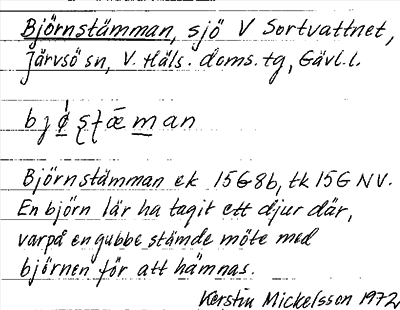 Björnstämman, sjö V Sortvattnet,
Järvsö sn, V. Häls. doms. tg, Gävl. l.
bjǿʂʈǽman
Björnstämman ek 15G8b, tk 15G NV.
En björn lär ha tagit ett djur där,
varpå en gubbe stämde möte med
björnen för att hämnas.
Kerstin Mickelsson 1972